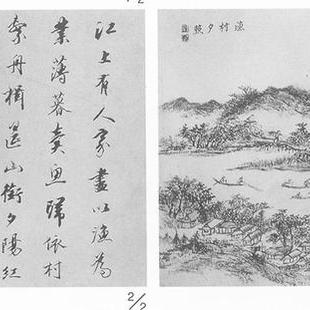 漁村夕照
江上有人家盡以漁為
業薄暮賣魚歸依村
繫舟楫山銜夕陽紅
2/2